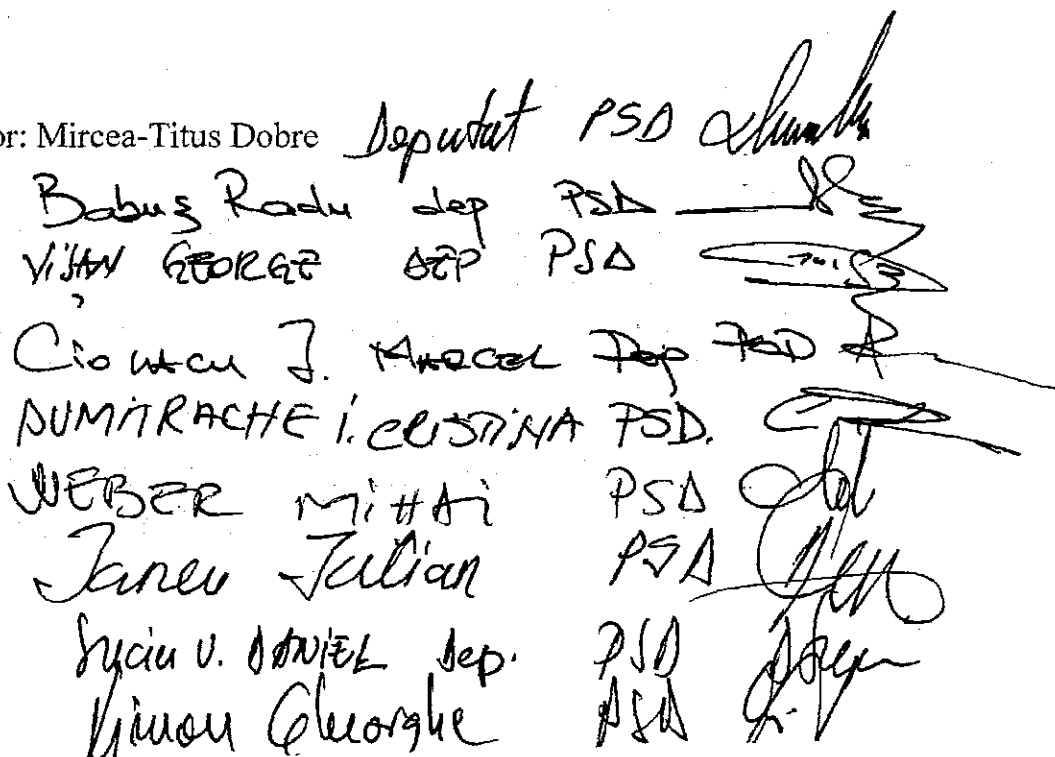 or: Mircea-Titus Dobre Deputat PSD
Babuș Radu dep PSD
VIȘAN GEORGE DEP PSD
Ciolacu I. MARCEL Dep PSD
DUMITRACHE I. CRISTINA PSD.
WEBER MiHAi PSD
Iancu Iulian PSD
Suciu V. DANiEL Dep. PSD
Șimon Gheorghe PSD